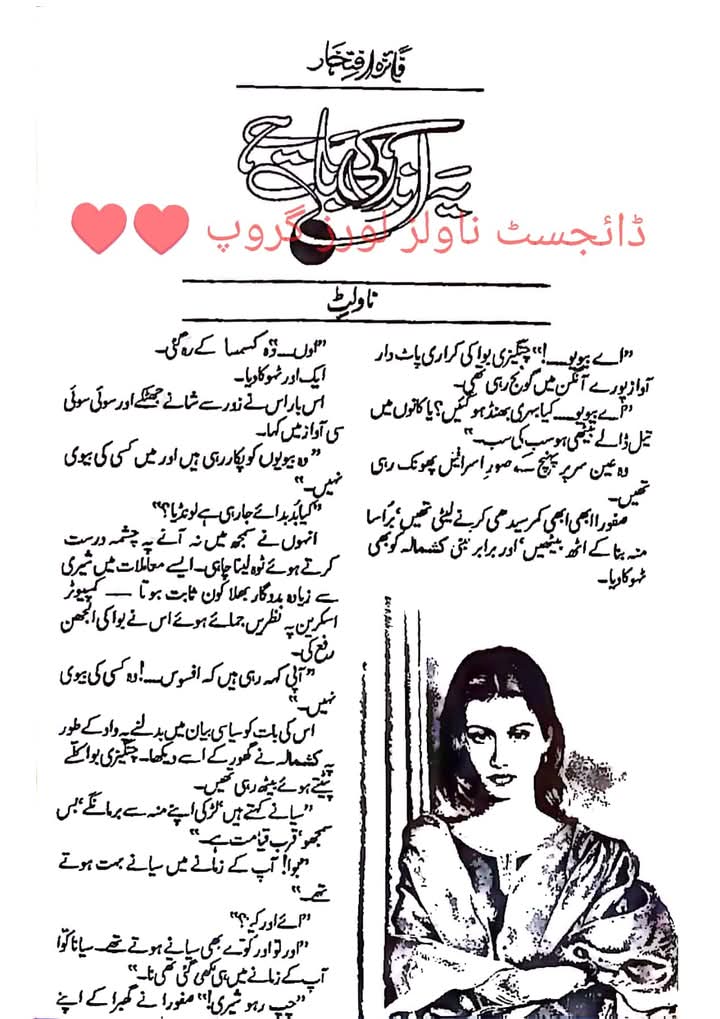 فائزہ افتخار
یہ اندر کی بات ہے
ڈائجسٹ ناولز لورز گروپ
ناولٹ
”اے بیویو۔۔۔!“ چنگیزی بوا کی کراری پاٹ دار
آواز پورے آنگن میں گونج رہی تھی۔
”اے بیویو۔۔۔ کیا بہری بھنڈ ہو گئیں؟ یا کانوں میں
تیل ڈالے بیٹھی ہو سب کی سب۔“
وہ عین سر پر پہنچ کے صورِ اسرافیل پھونک رہی
تھیں۔
صفورا ابھی ابھی کمر سیدھی کرنے لیٹی تھیں‘ بُرا سا
منہ بنا کے اٹھ بیٹھیں‘ اور برابر لیٹی کشمالہ کو بھی
ٹہوکا دیا۔
”اوں۔۔۔“ وہ کسمسا کے رہ گئی۔
ایک اور ٹہوکا دیا۔
اس بار اس نے زور سے شانے جھٹکے اور سوئی سوئی
سی آواز میں کہا۔
”وہ بیویوں کو پکار رہی ہیں اور میں کسی کی بیوی
نہیں۔“
”کیا بُدبدائے جا رہی ہے لونڈیا؟“
انہوں نے سمجھ میں نہ آنے پہ چشمہ درست
کرتے ہوئے ٹوہ لینا چاہی۔ ایسے معاملات میں شیری
سے زیادہ مددگار بھلا کون ثابت ہوتا — کمپیوٹر
اسکرین پہ نظریں جمائے ہوئے اس نے بوا کی الجھن
رفع کی۔
”آپی کہہ رہی ہیں کہ افسوس۔۔۔! وہ کسی کی بیوی
نہیں۔“
اس کی بات کو سیاسی بیان میں بدلنے پہ داد کے طور
پہ کشمالہ نے گھور کے اسے دیکھا۔ چنگیزی بوا کلّے
پیٹتے ہوئے بیٹھ رہی تھیں۔
”سیانے کہتے ہیں ‘لڑکی اپنے منہ سے بر مانگے‘ بس
سمجھو‘ قرب قیامت ہے۔“
”بوا! آپ کے زمانے میں سیانے بہت ہوتے
تھے۔“
”اے اور کیا؟“
”اور تو اور کوے بھی سیانے ہوتے تھے۔ سیانا کوّا
آپ کے زمانے میں ہی لکھی گئی تھی نا۔“
”چپ رہو شیری!“ صفورا نے گھبرا کے اپنے